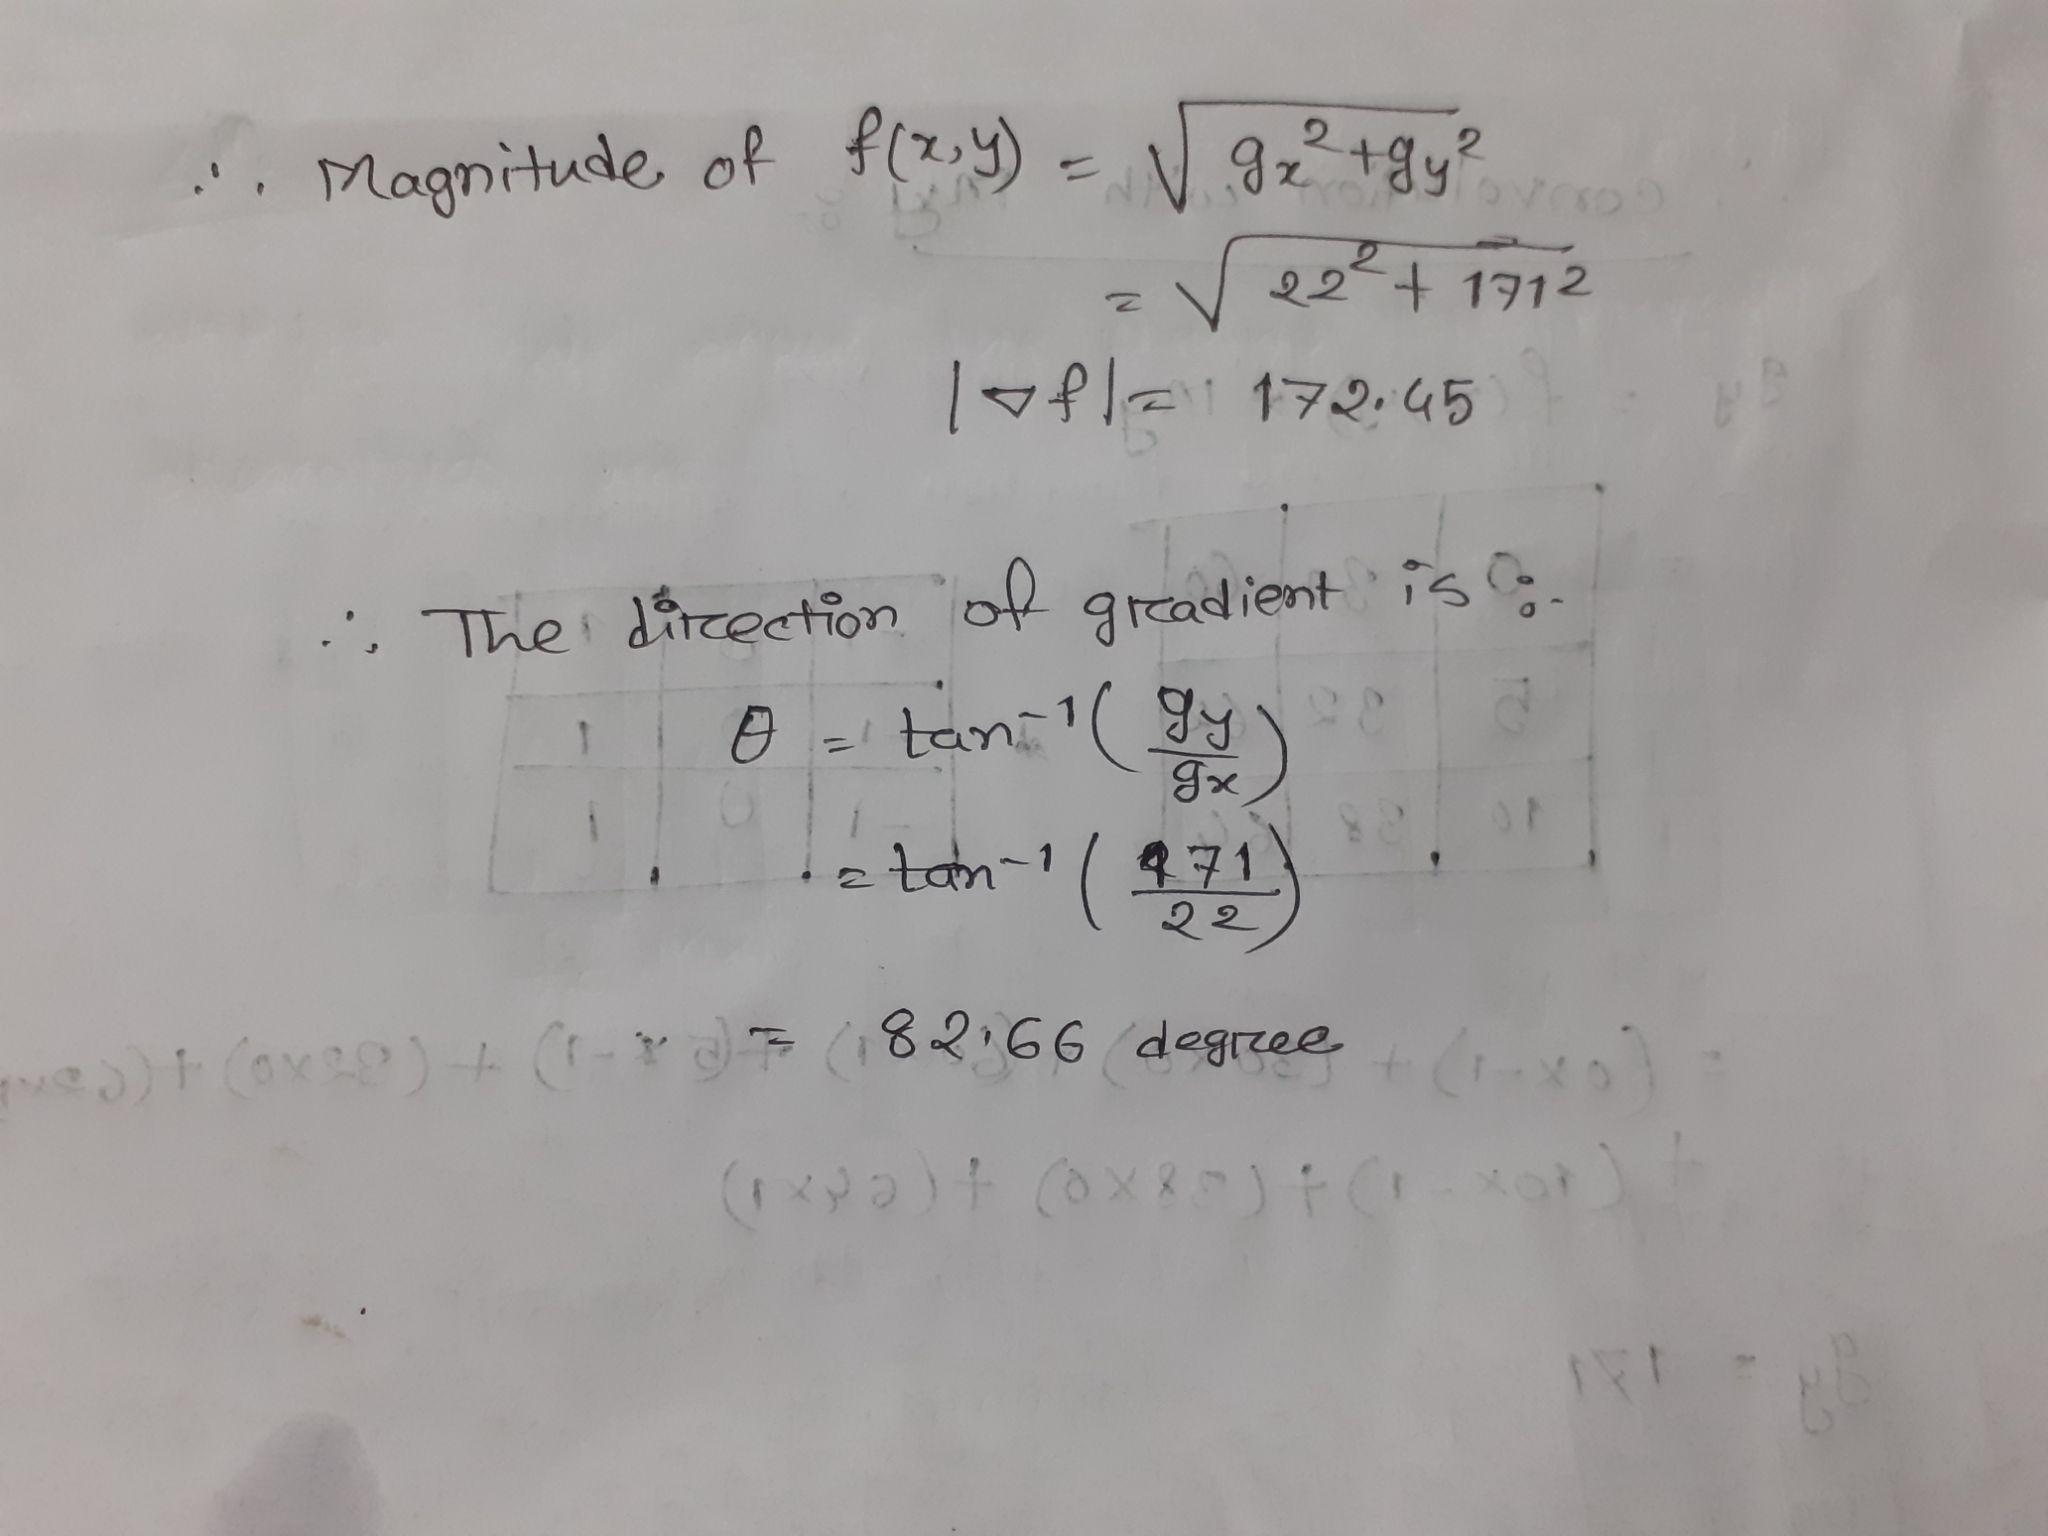 ∴ Magnitude of f(x,y) = √(gx²+gy²)
= √(22² + 171²)
|∇f| = 172.45
∴ The direction of gradient is :-
θ = tan⁻¹(gy/gx)
= tan⁻¹(171/22)
= 82.66 degree